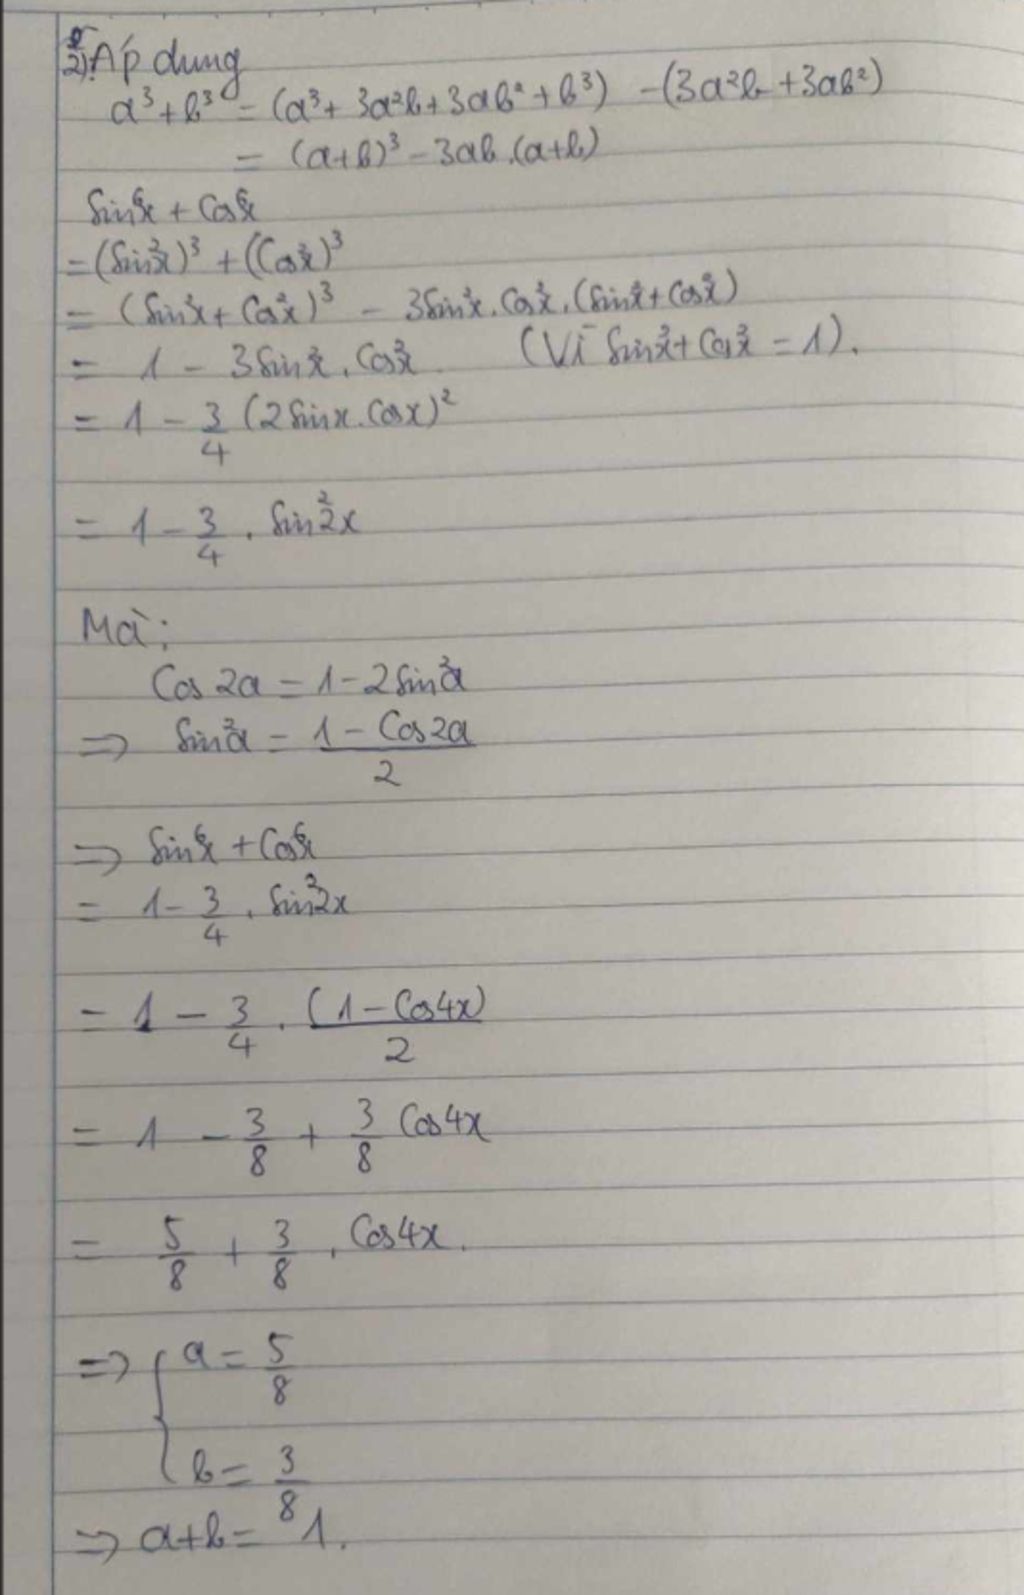 2) Áp dụng
a³ + b³ = (a³ + 3a²b + 3ab² + b³) - (3a²b + 3ab²)
= (a+b)³ - 3ab.(a+b)
Sin⁶x + Cos⁶x
= (Sin²x)³ + (Cos²x)³
= (Sin²x + Cos²x)³ - 3Sin²x.Cos²x.(Sin²x + Cos²x)
= 1 - 3Sin²x.Cos²x (Vì Sin²x + Cos²x = 1).
= 1 - 3/4 (2Sinx.Cosx)²
= 1 - 3/4 . Sin²2x
Mà:
Cos2a = 1 - 2Sin²a
=> Sin²a = (1 - Cos2a)/2
=> Sin⁶x + Cos⁶x
= 1 - 3/4 . Sin²2x
= 1 - 3/4 . (1 - Cos4x)/2
= 1 - 3/8 + 3/8 Cos4x
= 5/8 + 3/8 . Cos4x.
=> { a = 5/8
b = 3/8
=> a+b = 1.